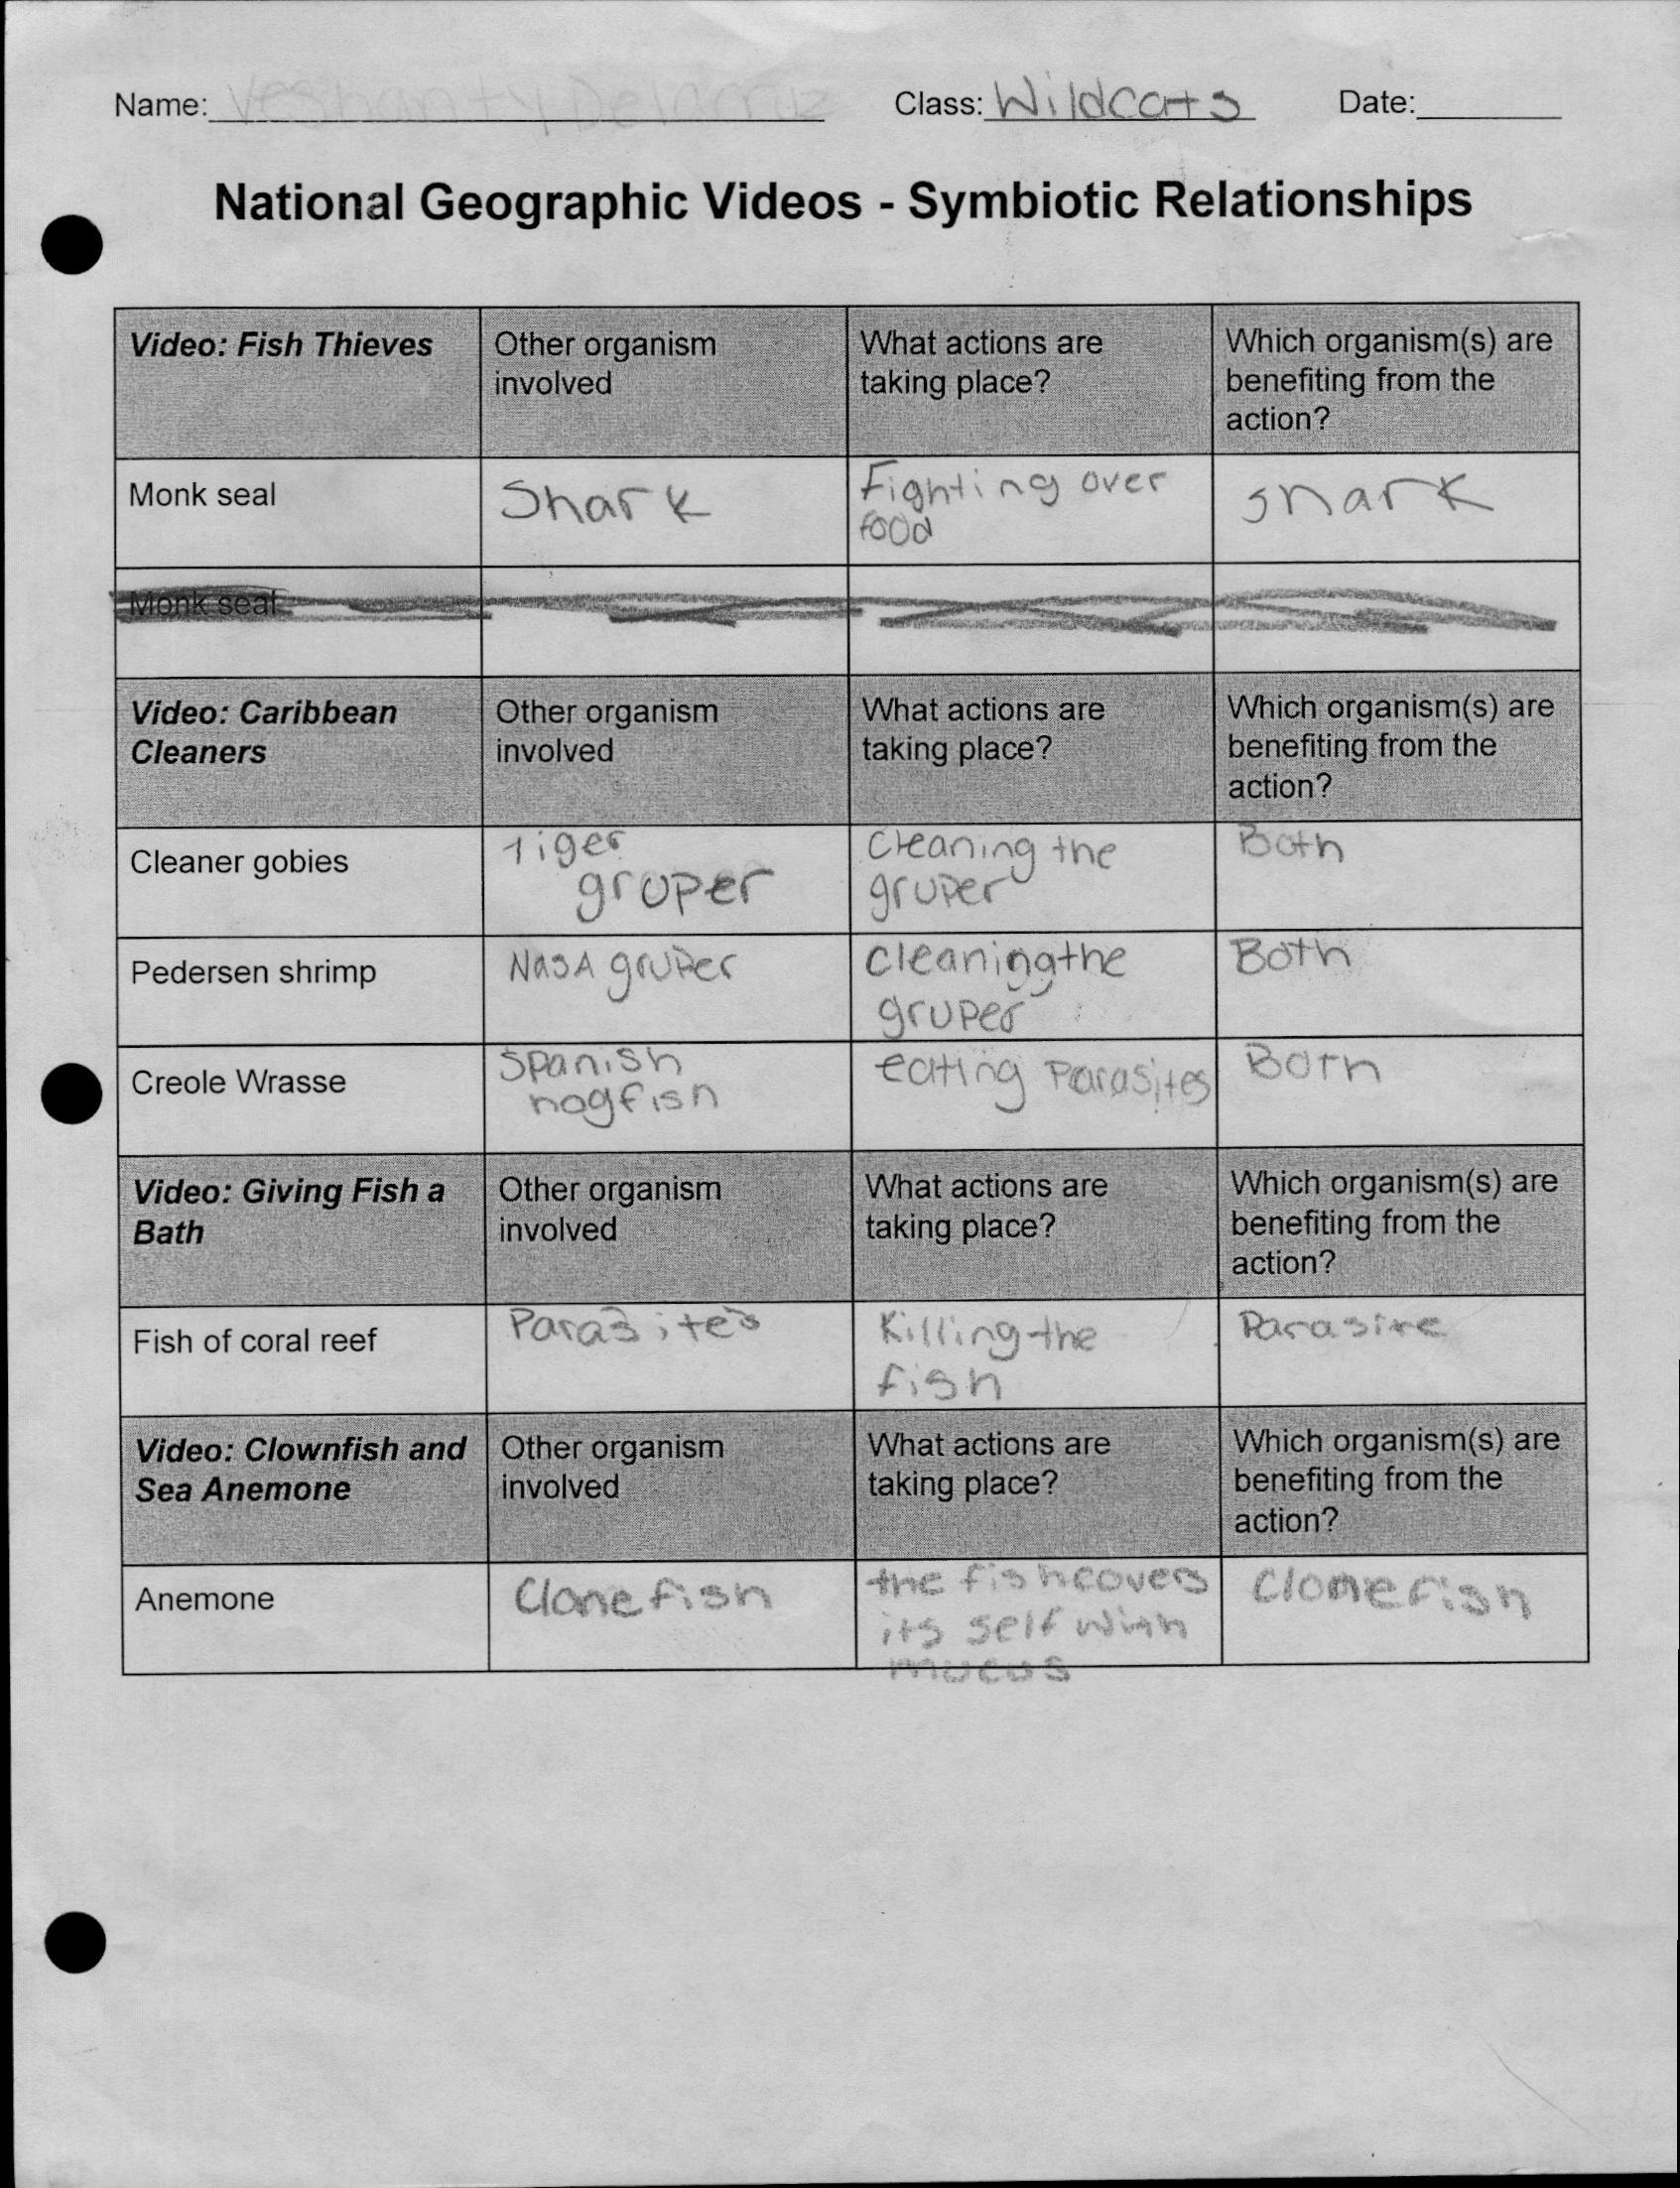 Name: Yeshanty Delacruz Class: Wildcats Date:
National Geographic Videos - Symbiotic Relationships
Video: Fish Thieves
Other organism
involved
What actions are
taking place?
Which organism(s) are
benefiting from the
action?
Monk seal
Shark
Fighting over
food
shark
Monk seal
Video: Caribbean
Cleaners
Other organism
involved
What actions are
taking place?
Which organism(s) are
benefiting from the
action?
Cleaner gobies
Tiger
gruper
Cleaning the
gruper
Both
Pedersen shrimp
NASA gruper
cleaning the
gruper
Both
Creole Wrasse
Spanish
hogfish
eating Parasites
Both
Video: Giving Fish a
Bath
Other organism
involved
What actions are
taking place?
Which organism(s) are
benefiting from the
action?
Fish of coral reef
Parasites
Killing the
fish
Parasite
Video: Clownfish and
Sea Anemone
Other organism
involved
What actions are
taking place?
Which organism(s) are
benefiting from the
action?
Anemone
Clone fish
the fish covers
its self with
mucus
Clone fish